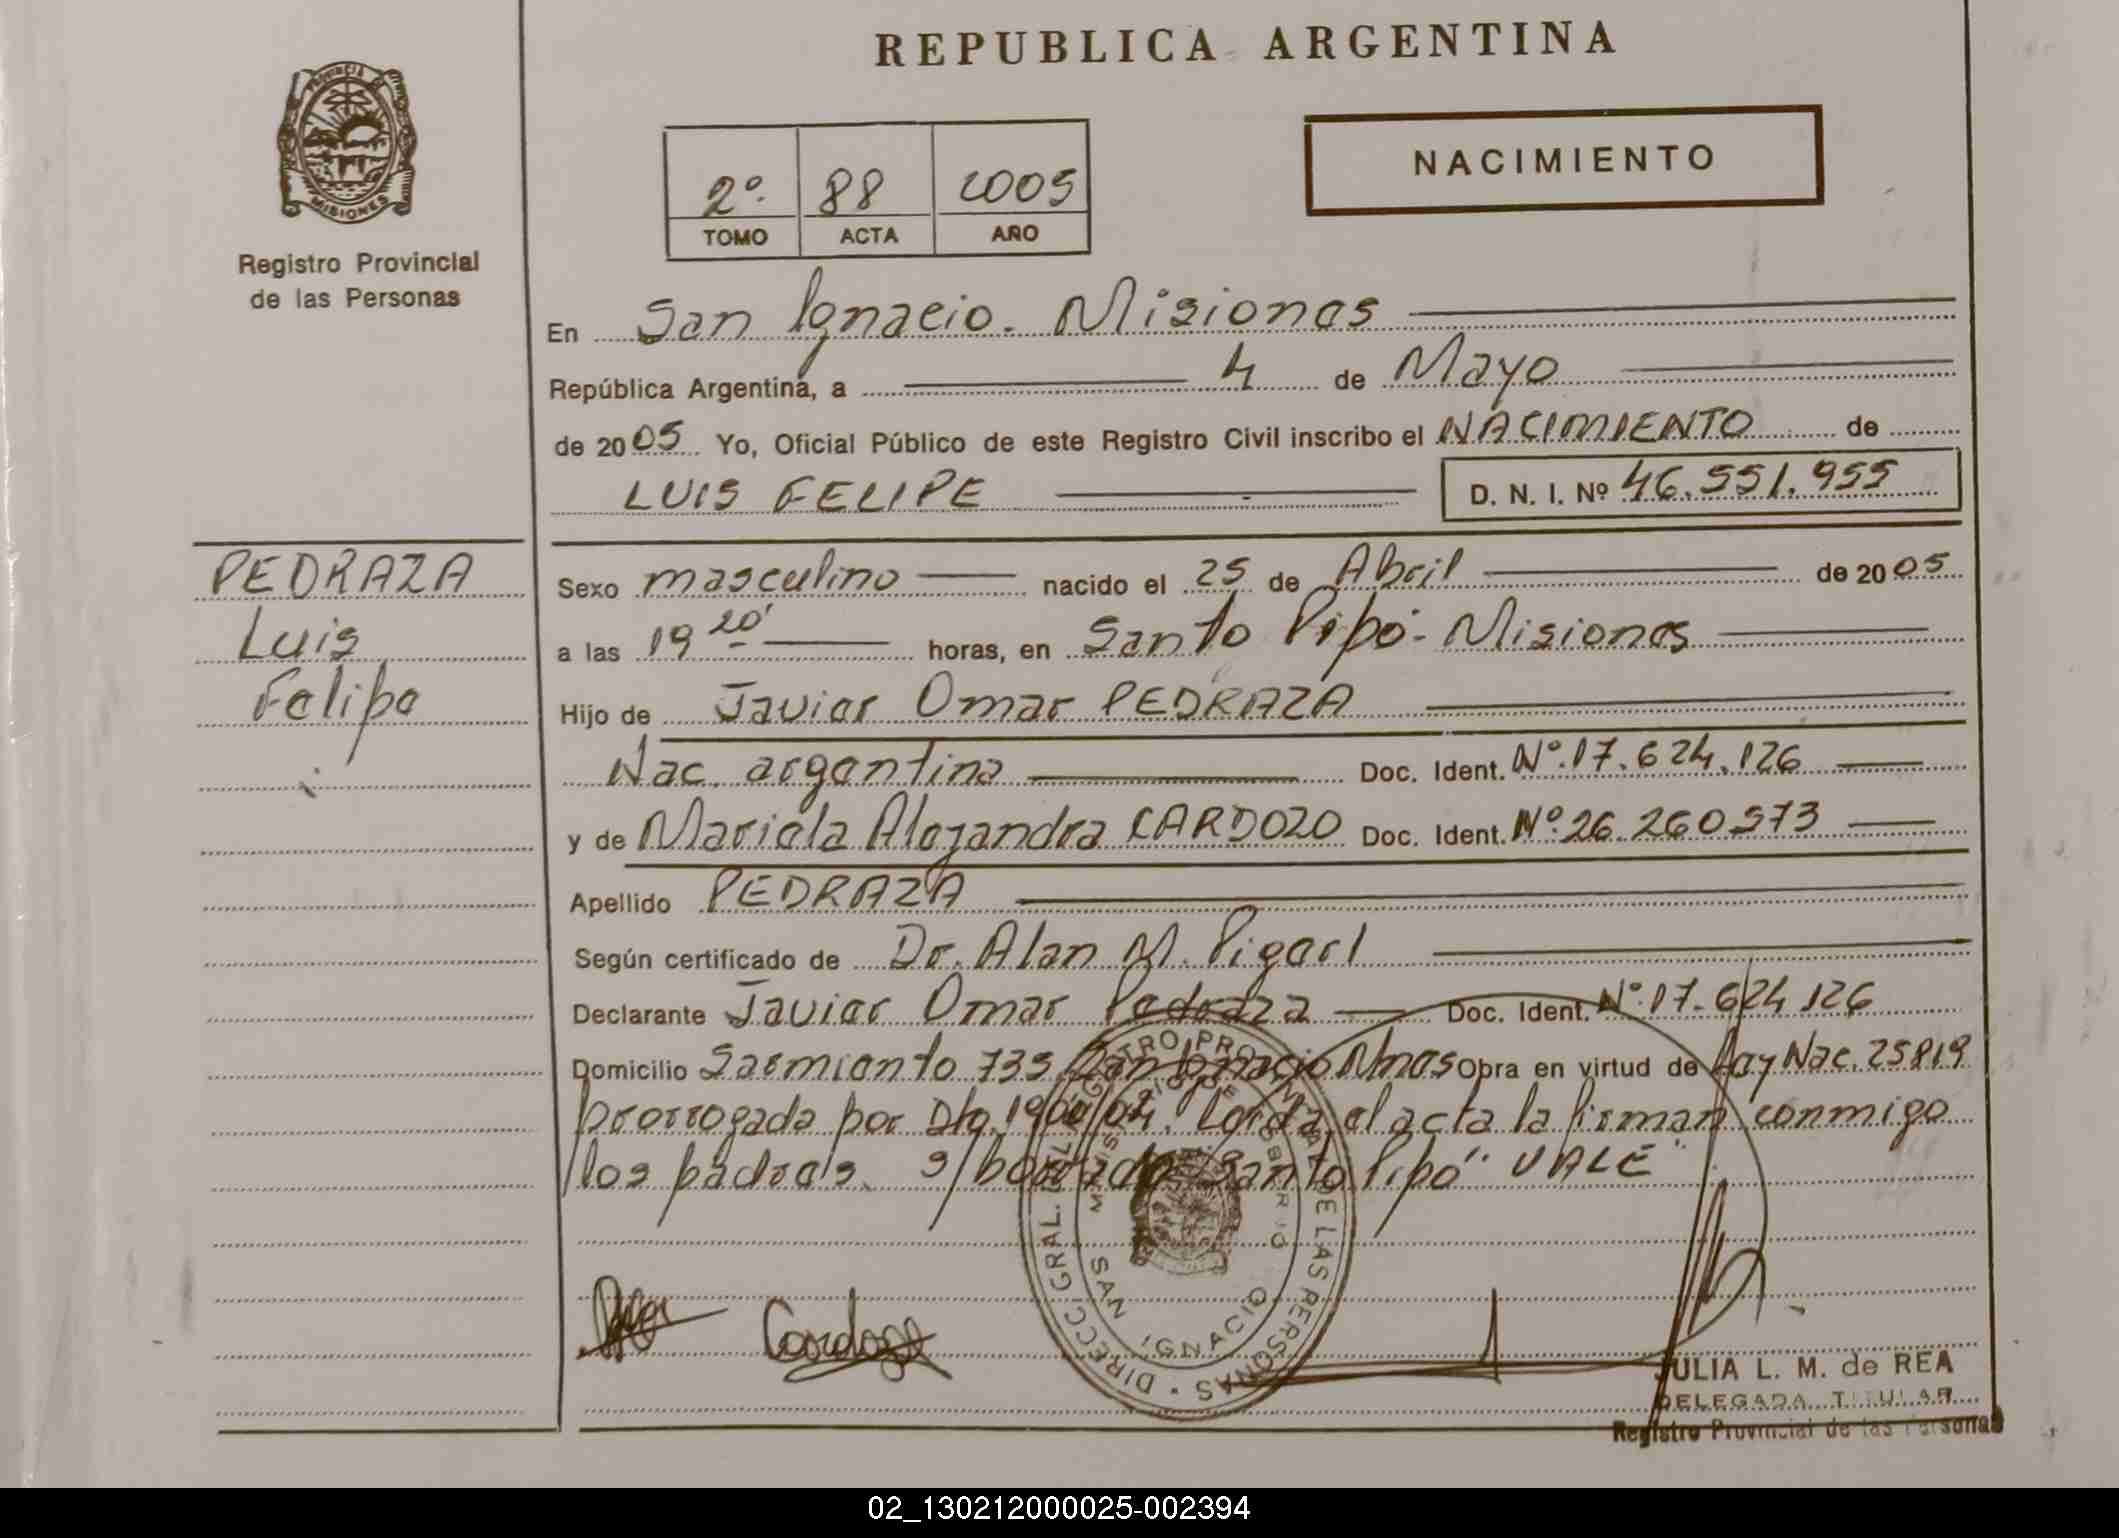 REPUBLICA ARGENTINA
PROVINCIA DE
MISIONES
Registro Provincial
de las Personas
2º. 88 2005
TOMO ACTA AÑO
NACIMIENTO
En San Ignacio. Misiones
República Argentina, a 4 de Mayo
de 2005 Yo, Oficial Público de este Registro Civil inscribo el NACIMIENTO de
LUIS FELIPE D. N. I. Nº 46.551.955
PEDRAZA
Luis
Felipe
Sexo masculino nacido el 25 de Abril de 2005
a las 19 20' horas, en Santo Pipó - Misiones
Hijo de Javier Omar PEDRAZA
Nac. argentina Doc. Ident. Nº.17.624.126
y de Mariela Alejandra CARDOZO Doc. Ident. Nº.26.260.573
Apellido PEDRAZA
Según certificado de Dr. Alan M.
Declarante Javier Omar Pedraza Doc. Ident. Nº.17.624.126
Domicilio Sarmiento 735 San Ignacio Mnes Obra en virtud de Ley Nac. 25819
prorrogada por Dto. Leída el acta la firman conmigo
los padres. S/borrado "Santo Pipó" VALE
DIRECC. GRAL. DEL REGISTRO PROVINCIAL DE LAS PERSONAS
SAN IGNACIO
Cardozo
JULIA L. M. de REA
DELEGADA TITULAR
Registro Provincial de las Personas
02_130212000025-002394